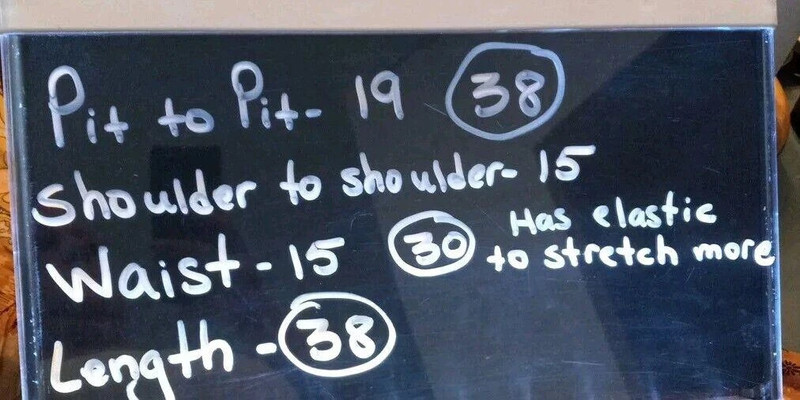 Pit to Pit- 19 38
Shoulder to shoulder- 15
Waist - 15 30 Has elastic to stretch more
Length - 38